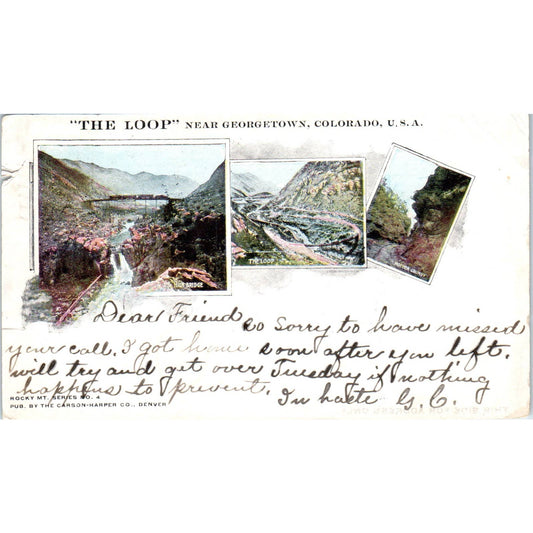 "THE LOOP" NEAR GEORGETOWN, COLORADO, U.S.A.
HIGH BRIDGE
THE LOOP
Dear Friend so sorry to have missed
your call. I got home soon after you left.
will try and get over Tuesday if nothing
happens to prevent. In haste G. C.
ROCKY MT. SERIES NO. 4
PUB. BY THE CARSON-HARPER CO., DENVER